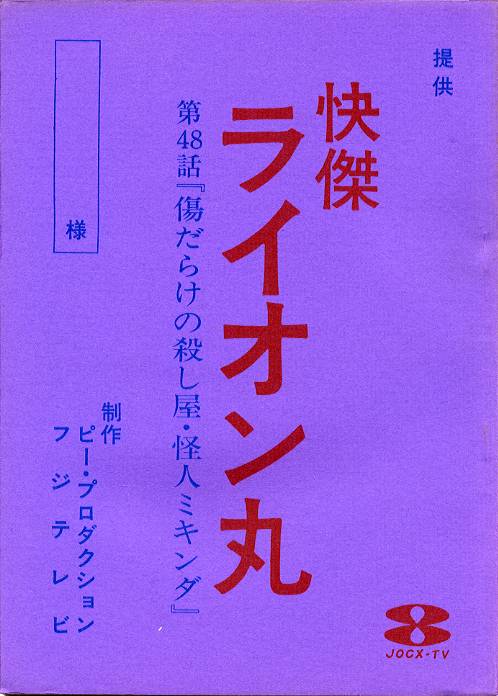 提供
快傑
ライオン丸
第48話『傷だらけの殺し屋・怪人ミキンダ』
様
制作
ピー・プロダクション
フジテレビ
JOCX-TV